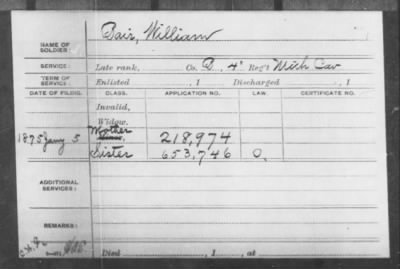 Bair, William
NAME OF SOLDIER:
SERVICE: Late rank, Co. B, 4" Reg't Mich Cav
TERM OF SERVICE: Enlisted , 1 Discharged , 1
DATE OF FILING. CLASS. APPLICATION NO. LAW. CERTIFICATE NO.
Invalid,
Widow,
1875 Jany 5 Mother 218,974
Sister 653,746 O.
ADDITIONAL SERVICES:
REMARKS:
Died , 1 , at